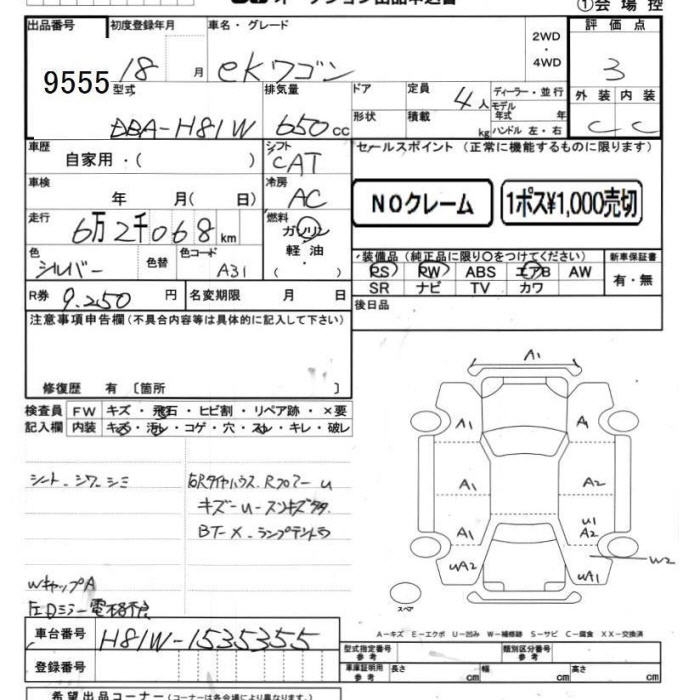 オークション出品申込書
①会場控
出品番号 9555
初度登録年月 18 月
車名・グレード ekワゴン
2WD・4WD
評価点 3
外装 C 内装 C
型式 DBA-H81W
排気量 650cc
ドア形状
定員 4人
積載 kg
ディーラー・並行
モデル年式 年
ハンドル 左・右
車歴 自家用・( )
シフト CAT
セールスポイント (正常に機能するものに限ります)
車検 年 月( 日)
冷房 AC
NOクレーム 1ポス¥1,000売切
走行 6万2千068km
燃料 ガソリン 軽油
色 シルバー 色替 色コード A31
装備品 (純正品に限り〇をつけてください)
新車保証書
PS PW ABS エアB AW
SR ナビ TV カワ
有・無
R券 9.250円 名変期限 月 日
後日品
注意事項申告欄(不具合内容等は具体的に記入して下さい)
修復歴 有 〔箇所 〕
検査員記入欄
FW キズ・飛石・ヒビ割・リペア跡・×要
内装 キズ・汚れ・コゲ・穴・スレ・キレ・破レ
シート-シワ-シミ
右Rタイヤハウス、RフロアーU
キズーU-スリキズ
BT-X-
Wキャップ A
左Dミラー電格不良
A1
A1 A
A1 A2
A1 U1 A2
UA2 UA1 W2
スペア
A-キズ E-エクボ U-凹み W-補修跡 S-サビ C-腐食 XX-交換済
車台番号 H81W-1535355
登録番号
型式指定番号参考 類別区分番号参考
車庫証明用参考 長さ cm 幅 cm 高さ cm
希望出品コーナー(コーナーは各会場により異なります。)